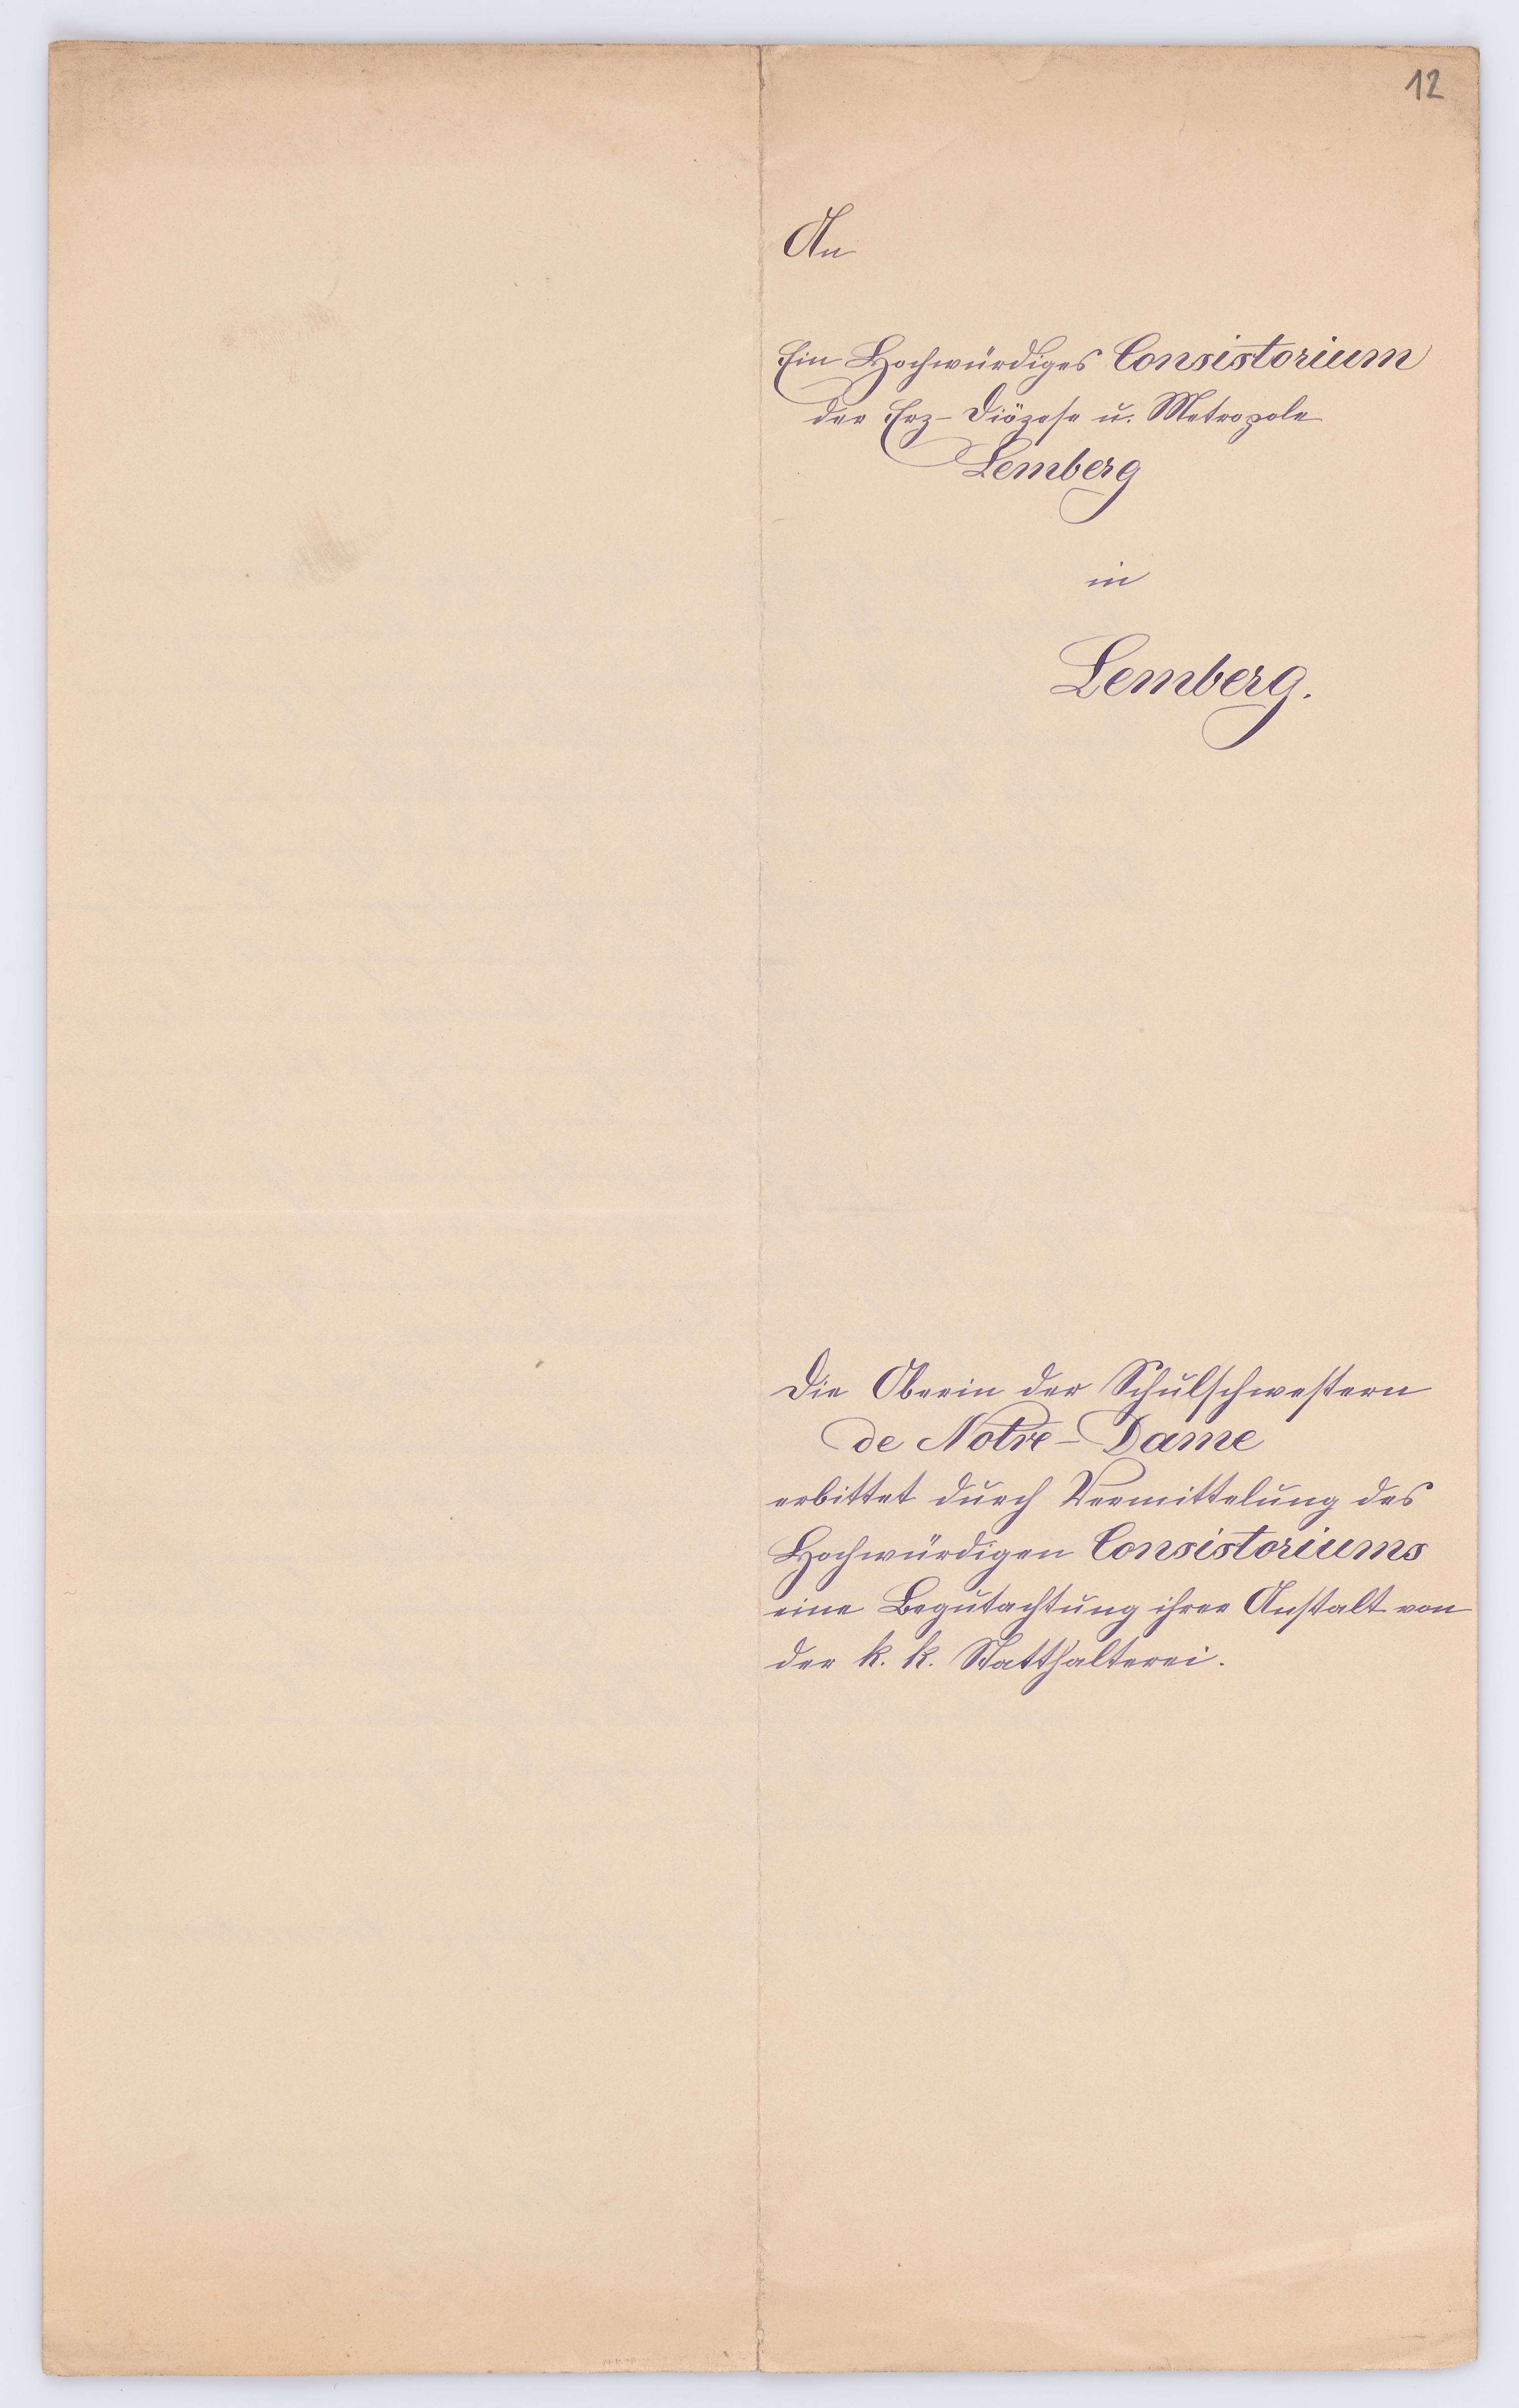 12
An
Ein Hochwürdiges Consistorium
der Erz-Diözese u. Metropole
Lemberg
in
Lemberg.
Die Oberin der Schulschwestern
de Notre-Dame
erbittet durch Vermittelung des
Hochwürdigen Consistoriums
eine Begutachtung ihrer Anstalt von
der k. k. Statthalterei.